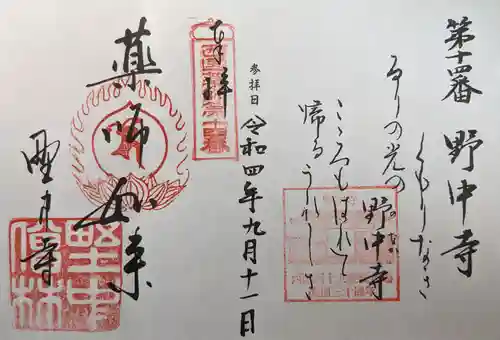 第十四番 野中寺
くもりなき
るりの光の野中寺
こゝろもはれて
帰るうれしさ
参拝日 令和四年九月十一日
奉拝
薬師如来
野中寺